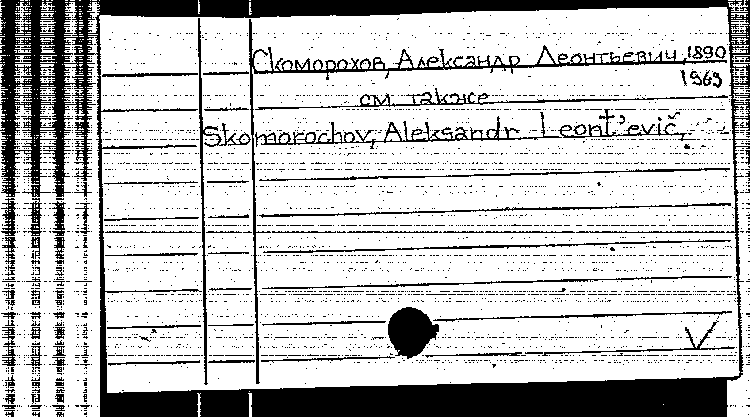 Скоморохов, Александр Леонтьевич, 1890
1969
см. также
Skomorochov, Aleksandr Leont'evič,